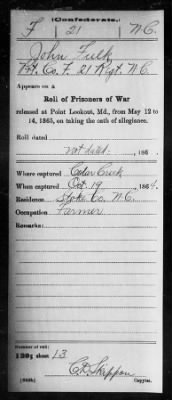 (Confederate.)
F 21 N.C.
John Fulk
Pvt. Co. F. 21 Regt. N.C.
Appears on a
Roll of Prisoners of War
released at Point Lookout, Md., from May 12 to
14, 1865, on taking the oath of allegiance.
Roll dated
not dated., 186
Where captured Cedar Creek
When captured Oct. 19, 1864.
Residence Stokes Co. N.C.
Occupation Farmer
Remarks:
Number of roll:
sheet 13
C.D. Skippon
Copyist.